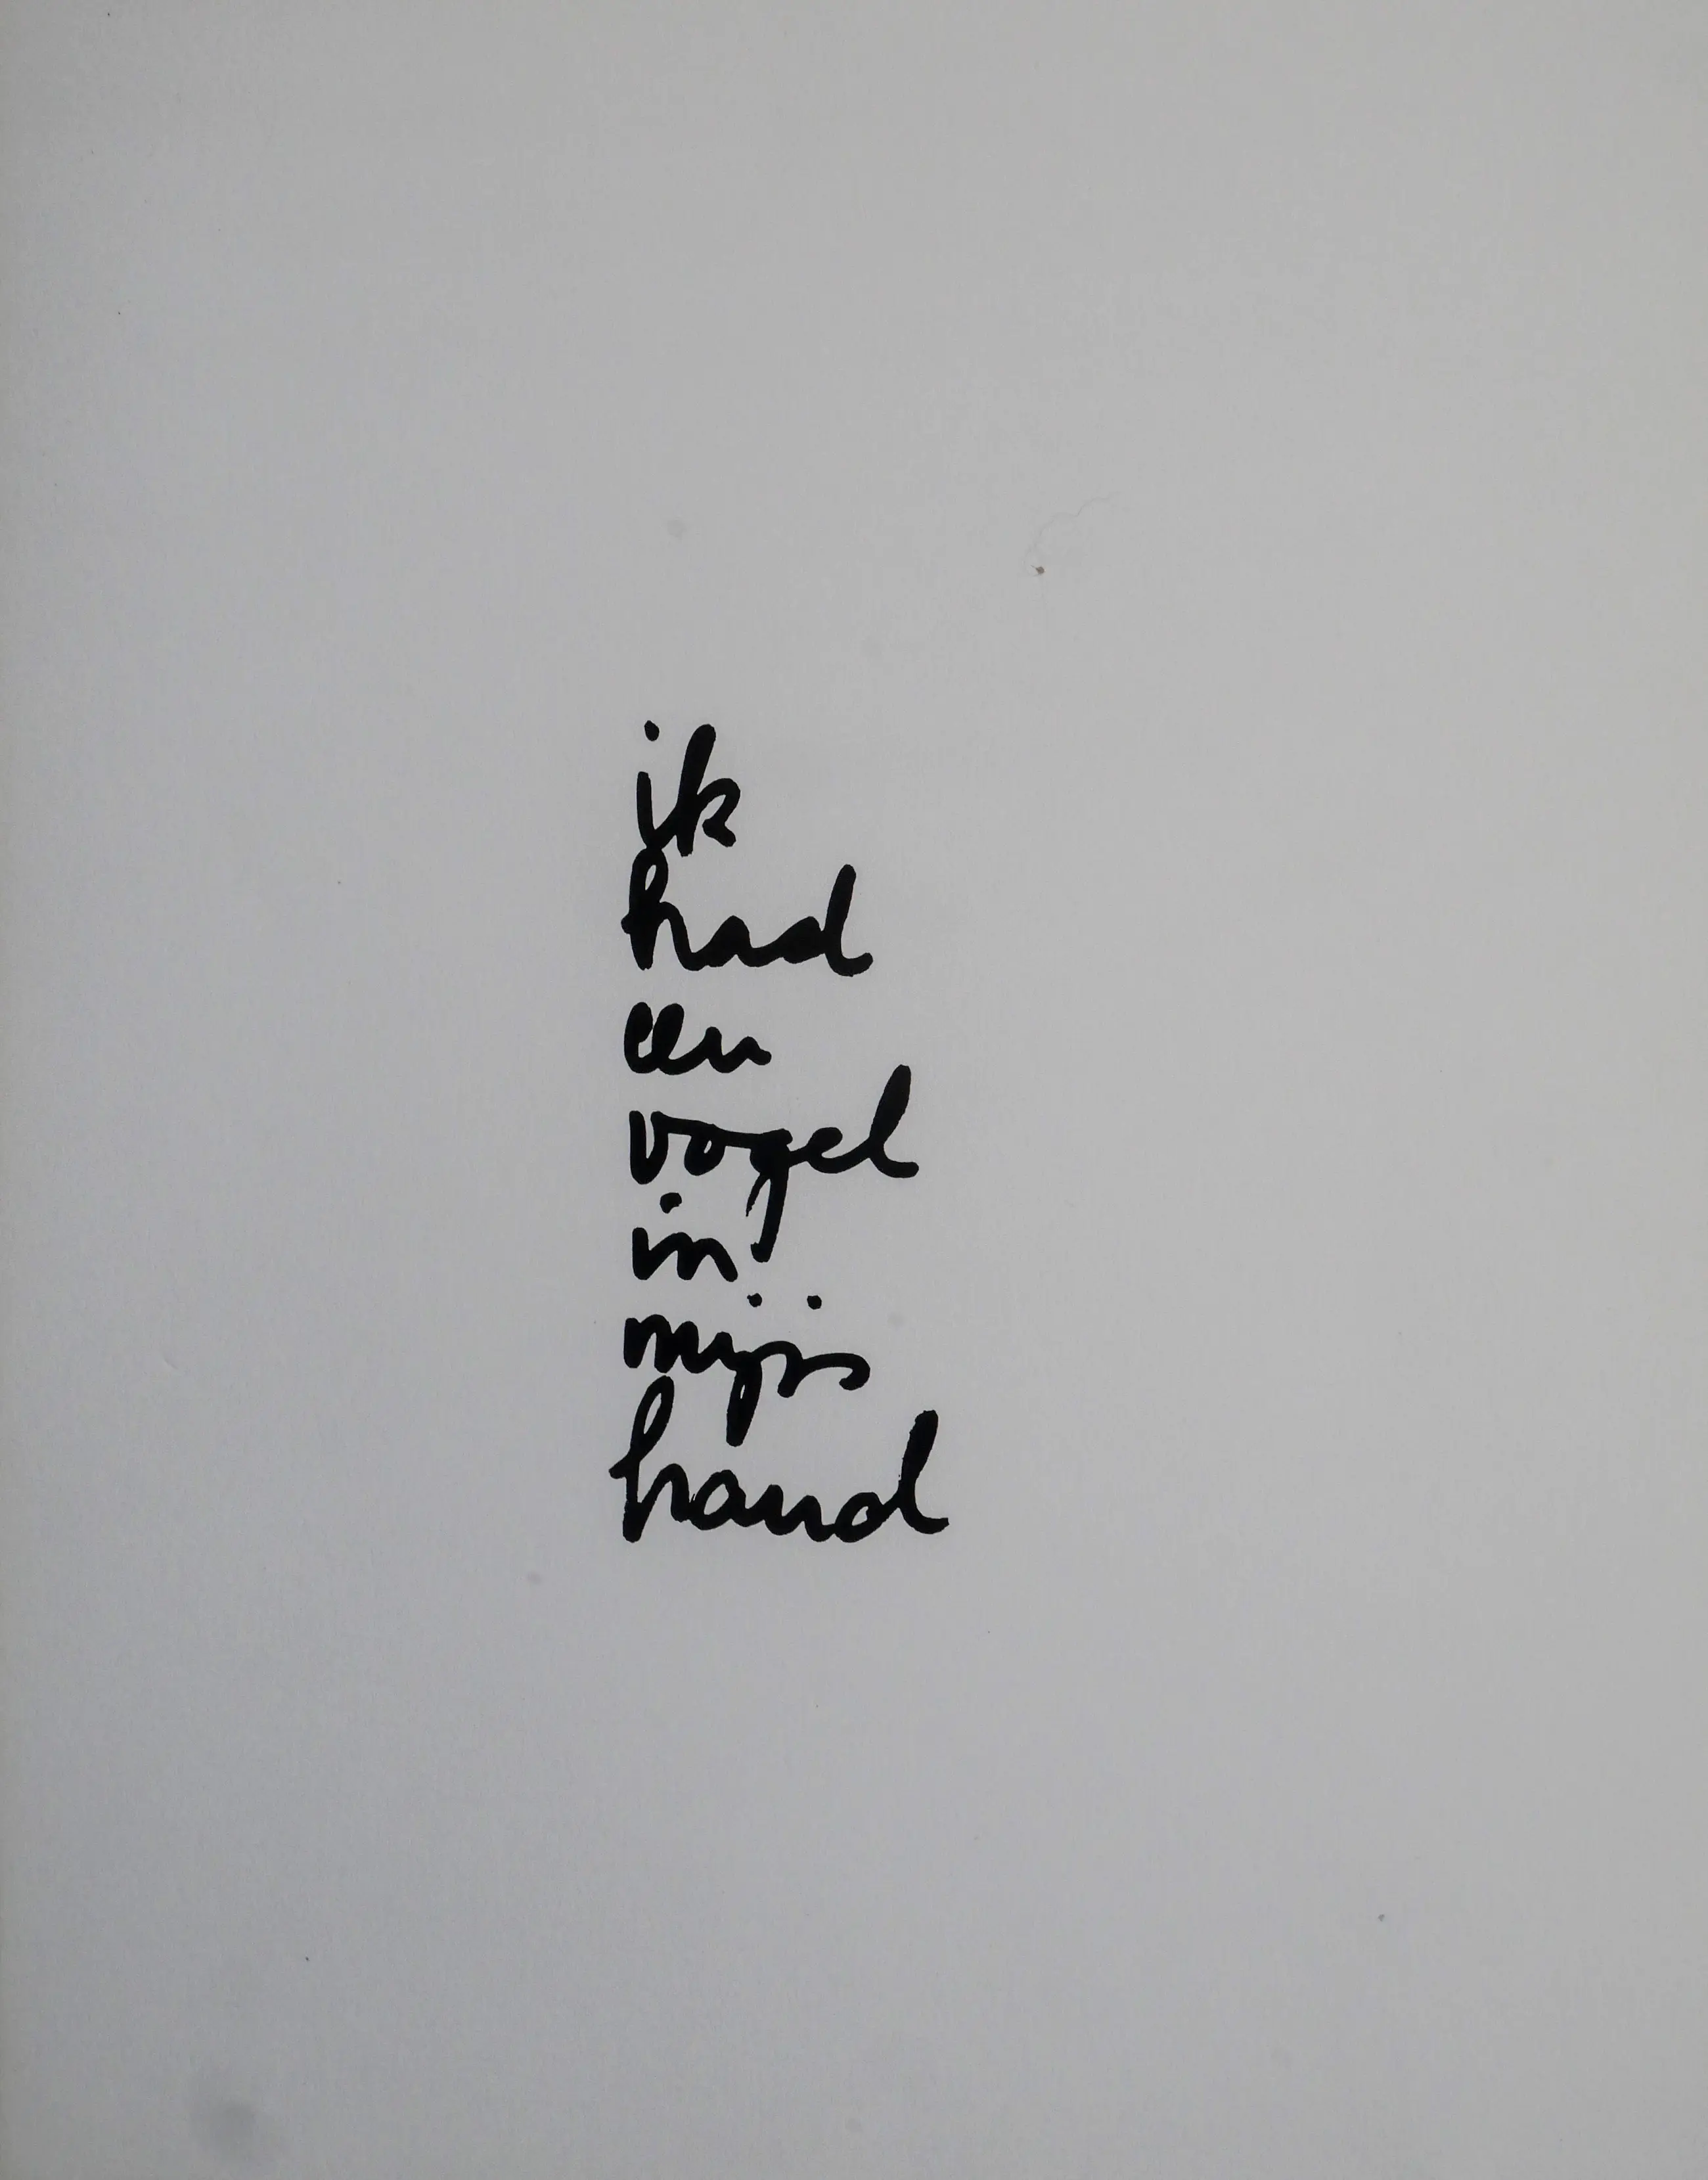 ik
had
een
vogel
in
mijn
hand